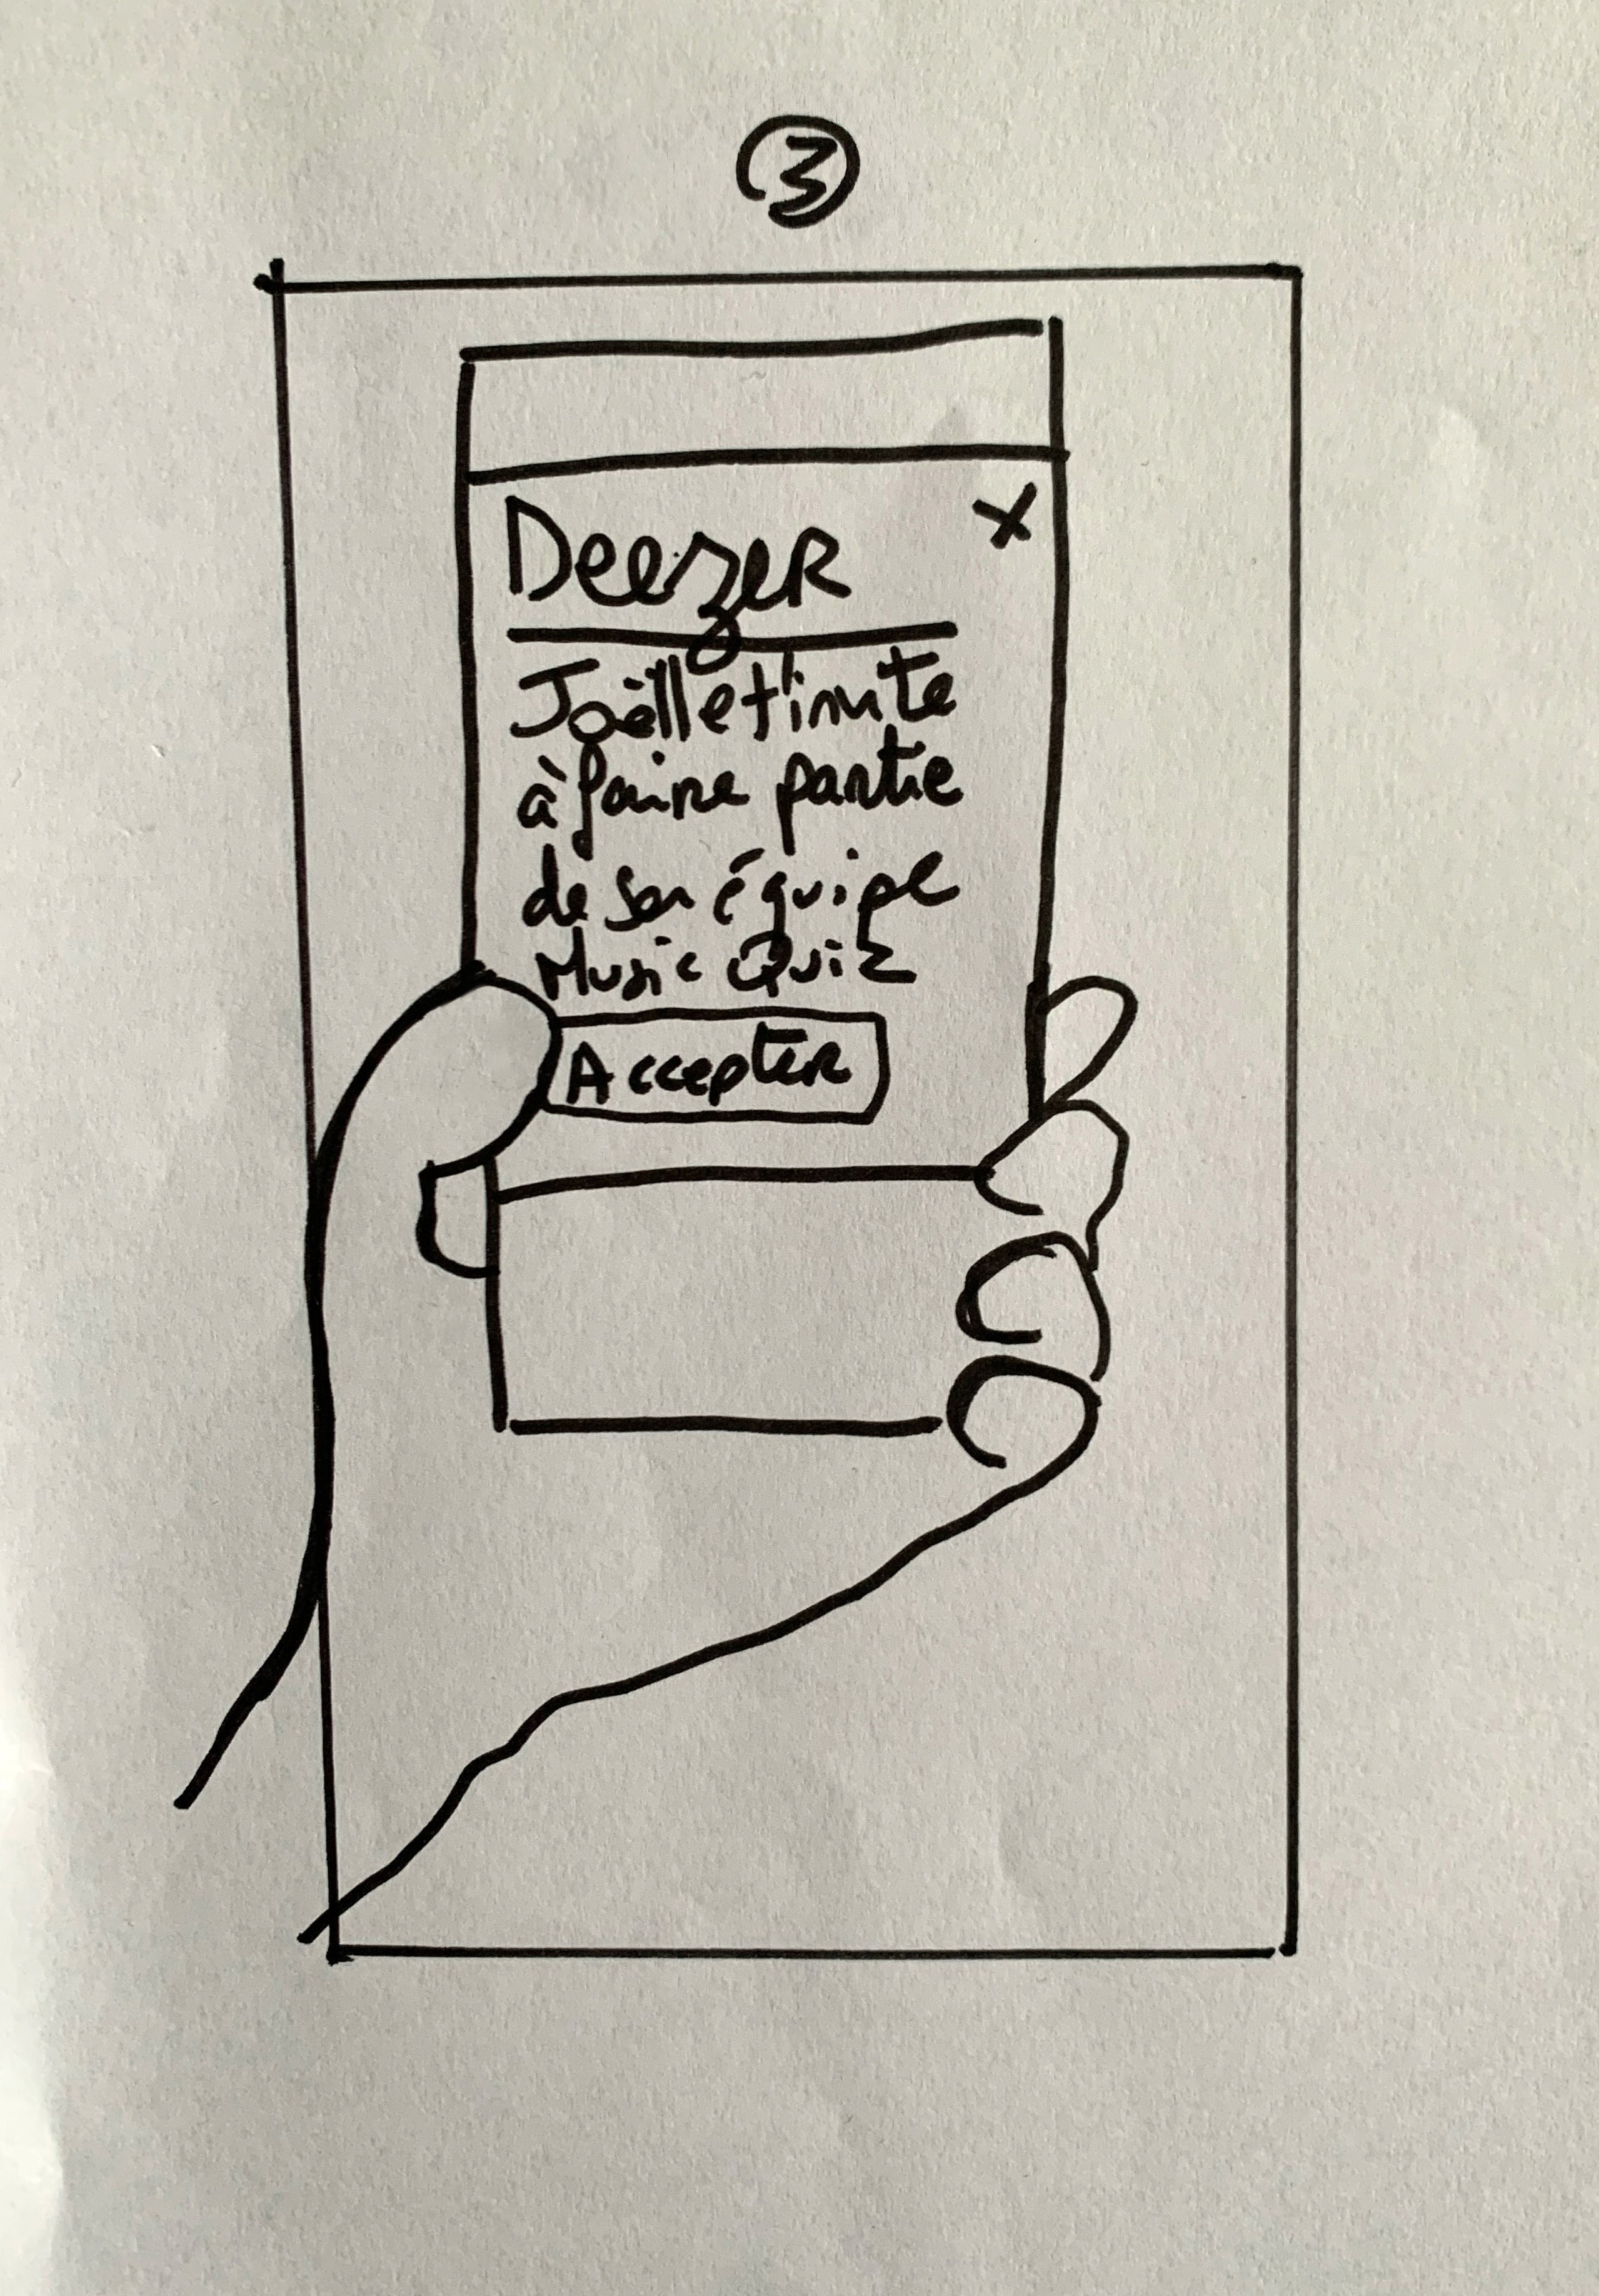 3
Deezer X
Joëlle t'invite
à faire partie
de son équipe
Music Quiz
Accepter